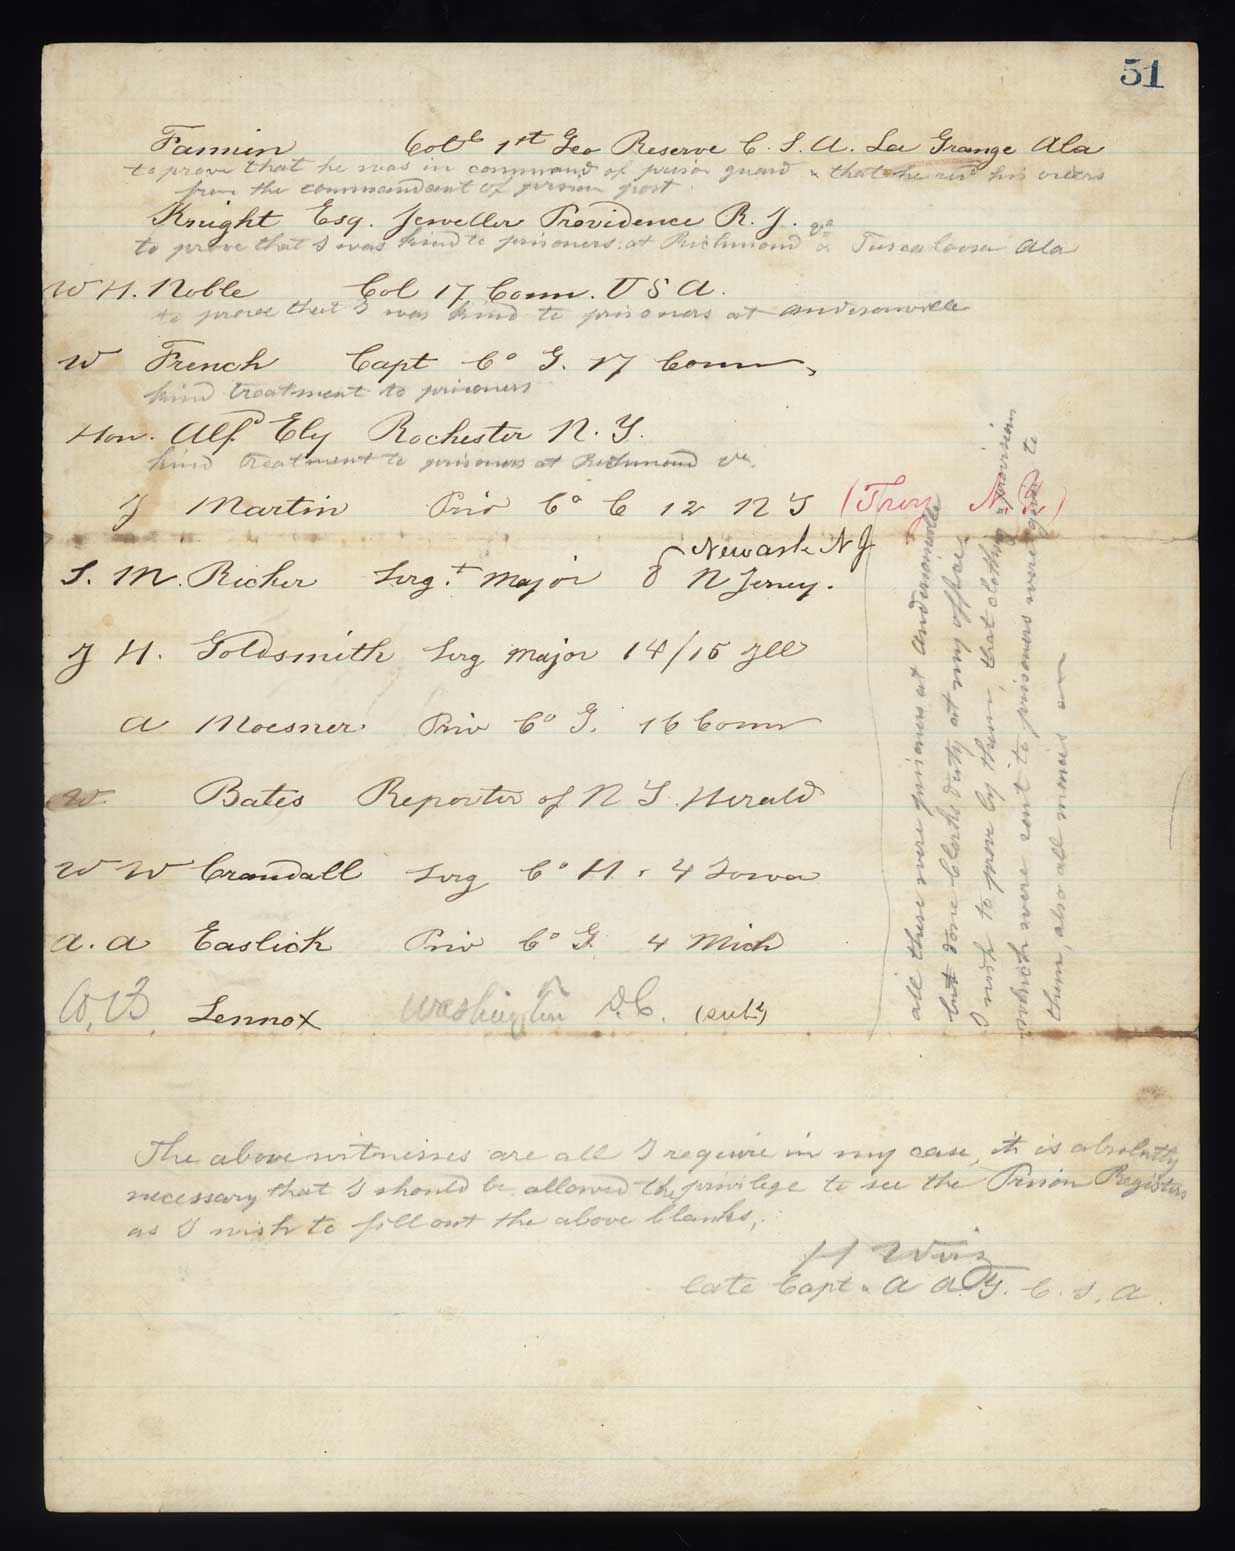 51
Fannin Col 1st Geo Reserve C. S. A. La Grange Ala
to prove that he was in command of prison guard & that he recd his orders
from the commandant of prison post
Knight Esq. Jeweller Providence R. I.
to prove that I was kind to prisoners at Richmond Va & Tuscaloosa Ala
W H. Noble Col 17 Conn. U S A.
to prove that I was kind to prisoners at Andersonville
W French Capt Co G. 17 Conn,
kind treatment to prisoners
Hon. Alfd Ely Rochester N. Y.
kind treatment to prisoners at Richmond Va.
J Martin Priv Co C 12 N Y (Troy N. Y.)
Newark N J
S. M. Richer Serg.t Major 8 N Jersey.
J H. Goldsmith Serg Major 14/15 Ill
A Moesner Priv Co G. 16 Conn
W. Bates Reporter of N Y. Herald
W W Crandall Serg Co H. 4 Iowa
A. A Easlick Priv Co G. 4 Mich
Lennox Washington D. C. (sut.)
all these were prisoners at Andersonville
but done Clerks duty at my office,
I wish to prove by them, that clothing & provision
which were sent to prisoners were given to
them, also all monies
The above witnesses are all I require in my case, it is absolutly
necessary that I should be allowed the privilege to see the Prison Registers
as I wish to fill out the above blanks,
H Wirz
late Capt & A A. G. C. S. A.